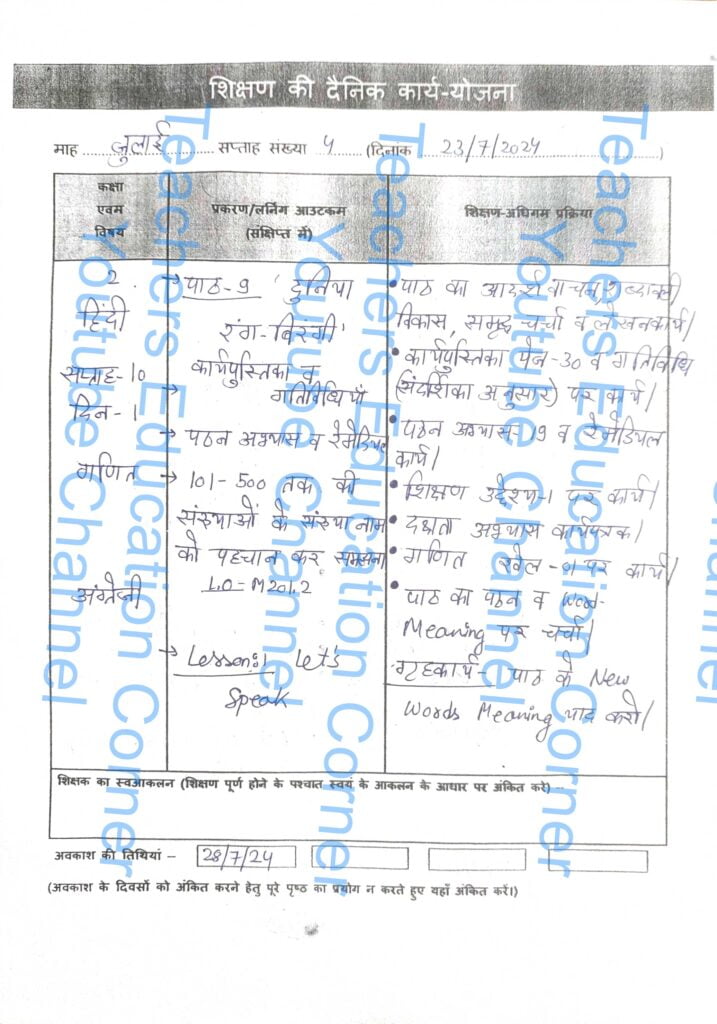 शिक्षण की दैनिक कार्य-योजना
माह जुलाई सप्ताह संख्या 4 (दिनाक 23/7/2024)
कक्षा
एवम
विषय
प्रकरण/लर्निंग आउटकम
(संक्षिप्त में)
शिक्षण-अधिगम प्रक्रिया
2
हिंदी
सप्ताह-10
दिन-1
गणित
अंग्रेजी
→ पाठ-9 'दुनिया
रंग-बिरंगी'
कार्यपुस्तिका व
→ गतिविधियाँ
→ पठन अभ्यास व रेमेडियल
→ 101-500 तक की
संख्याओं के संख्या नाम
को पहचान कर समझना
LO-M201.2
→ Lesson:1 Let's
Speak
• पाठ का आदर्श वाचन, शब्दावली
विकास, समूह चर्चा व लेखनकार्य।
• कार्यपुस्तिका पेज-30 व गतिविधि
(संदर्शिका अनुसार) पर कार्य।
• पठन अभ्यास-19 व रेमेडियल
कार्य।
• शिक्षण उद्देश्य-1 पर कार्य।
• दक्षता अभ्यास कार्यपत्रक।
• गणित खेल-01 पर कार्य।
• पाठ का पठन व Word-
Meaning पर चर्चा।
गृहकार्य- पाठ के New
Words Meaning याद करो।
शिक्षक का स्वआकलन (शिक्षण पूर्ण होने के पश्चात स्वयं के आकलन के आधार पर अंकित करे) --
अवकाश की तिथियां – 28/7/24
(अवकाश के दिवसों को अंकित करने हेतु पूरे पृष्ठ का प्रयोग न करते हुए यहाँ अंकित करें।)
Teachers Education Corner
Youtube Channel
Teachers Education Corner
Youtube Channel
Teachers Education Corner
Youtube Channel